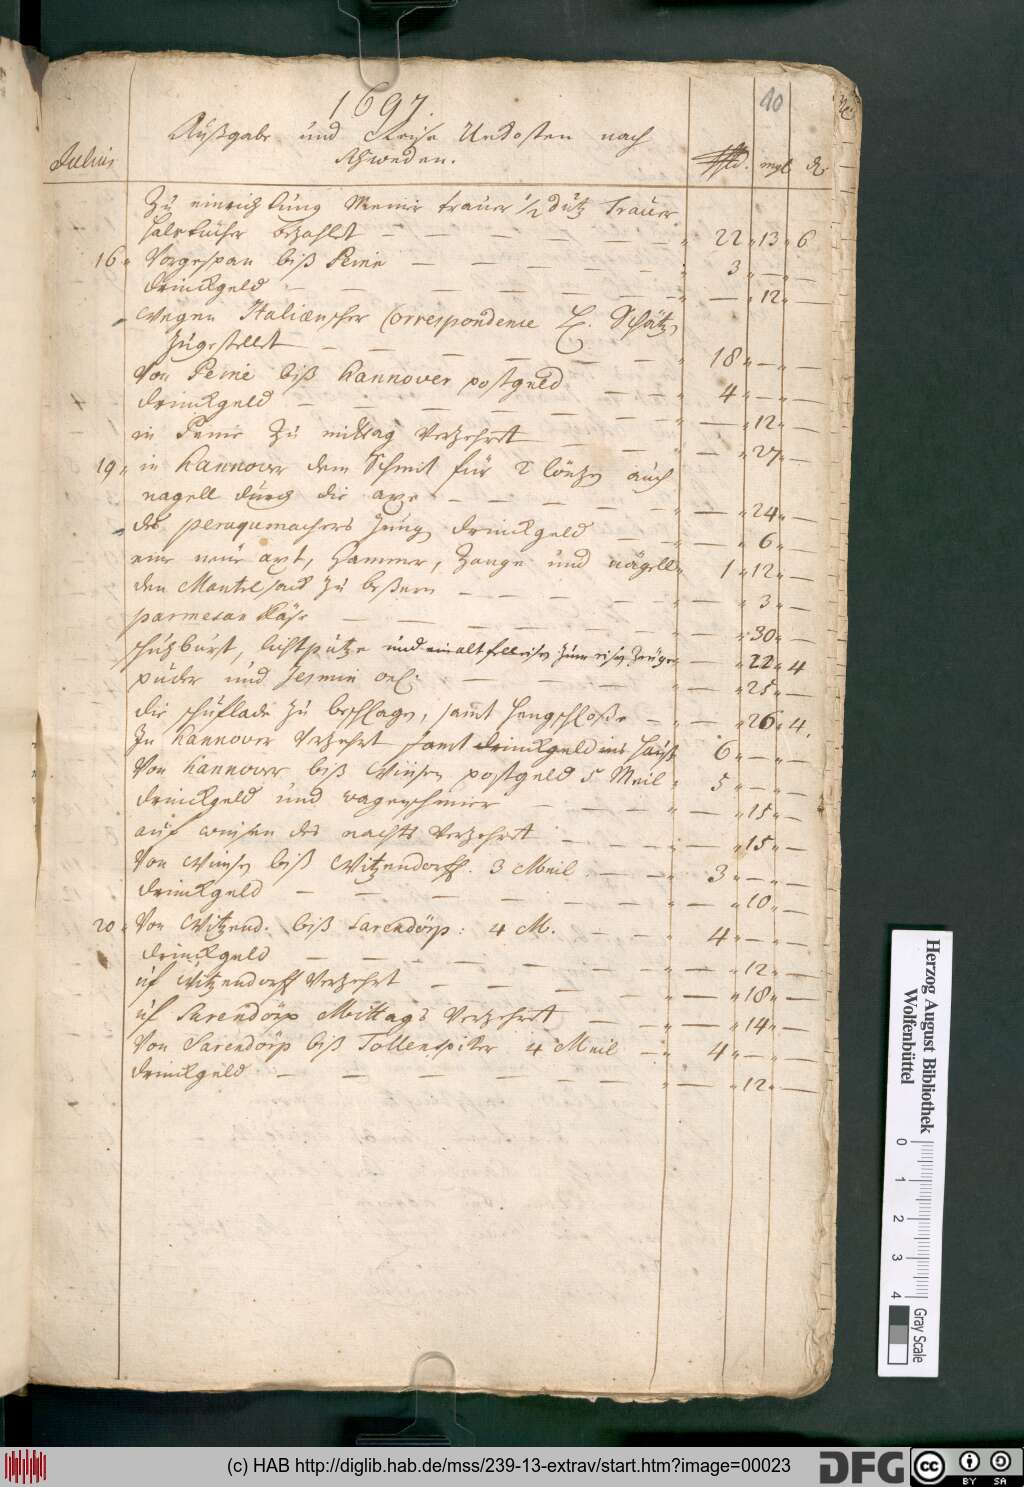 10
1697.
Außgabe und Reise Unkosten nach
Julius Schweden. mgl. d.
Zu einrichtung Meiner trauer 1/2 dutz Trauer
halstücher bezahlt — — — — — — 22 13 6
16. Vorgespan biß Peine — — — — — 3 — —
drinckgeld — — — — — — — 12 —
Wegen Italiænscher Correspondence H. Schütz
zugestellet — — — — — — 18 — —
Von Peine biß Hannover postgeld — — 4 — —
drinckgeld — — — — — — — 12 —
in Peine zu mittag Verzehret — — — 27 —
19. in Hannover dem Schmit für 2 auch
nagell durch die axe — — — — — 24 —
des peruquemachers Jung drinckgeld — — — 6 —
eine neue axt, Hammer, Zange und nägell 1 12 —
den Mantelsack zu beßern — — — — — 3 —
parmesan Käse — — — — — — 30 —
schuhburst, lichtputze und ein alt felleisen zum — 22 4
puder und Jesmin oel. — — — — — 25 —
die schuflade zu beschlagen, samt hengschloße — — 26 4.
In Hannover Verzehrt samt drinckgeld ins Hauß 6 — —
Von Hannover biß Winsen postgeld 5 Meil 5 — —
drinckgeld und wagenschmier — — — — 15 —
auf winsen des nachts Verzehret — — — — 15 —
Von Winsen biß Witzendorff. 3 Meil. — — 3 — —
drinckgeld — — — — — — — 10 —
20. Von Witzend. biß Sarendörp: 4 M. — — 4 — —
drinckgeld — — — — — — — 12 —
uf Witzendorff Verzehrt — — — — — 18 —
uf Sarendörp Mittags Verzehret — — — 14 —
Von Sarendörp biß Tollenspiker 4 Meil — 4 — —
drinckgeld — — — — — — — 12 —
Herzog August Bibliothek
Wolfenbüttel
0 1 2 3 4
Gray Scale
(c) HAB http://diglib.hab.de/mss/239-13-extrav/start.htm?image=00023
DFG
cc BY SA